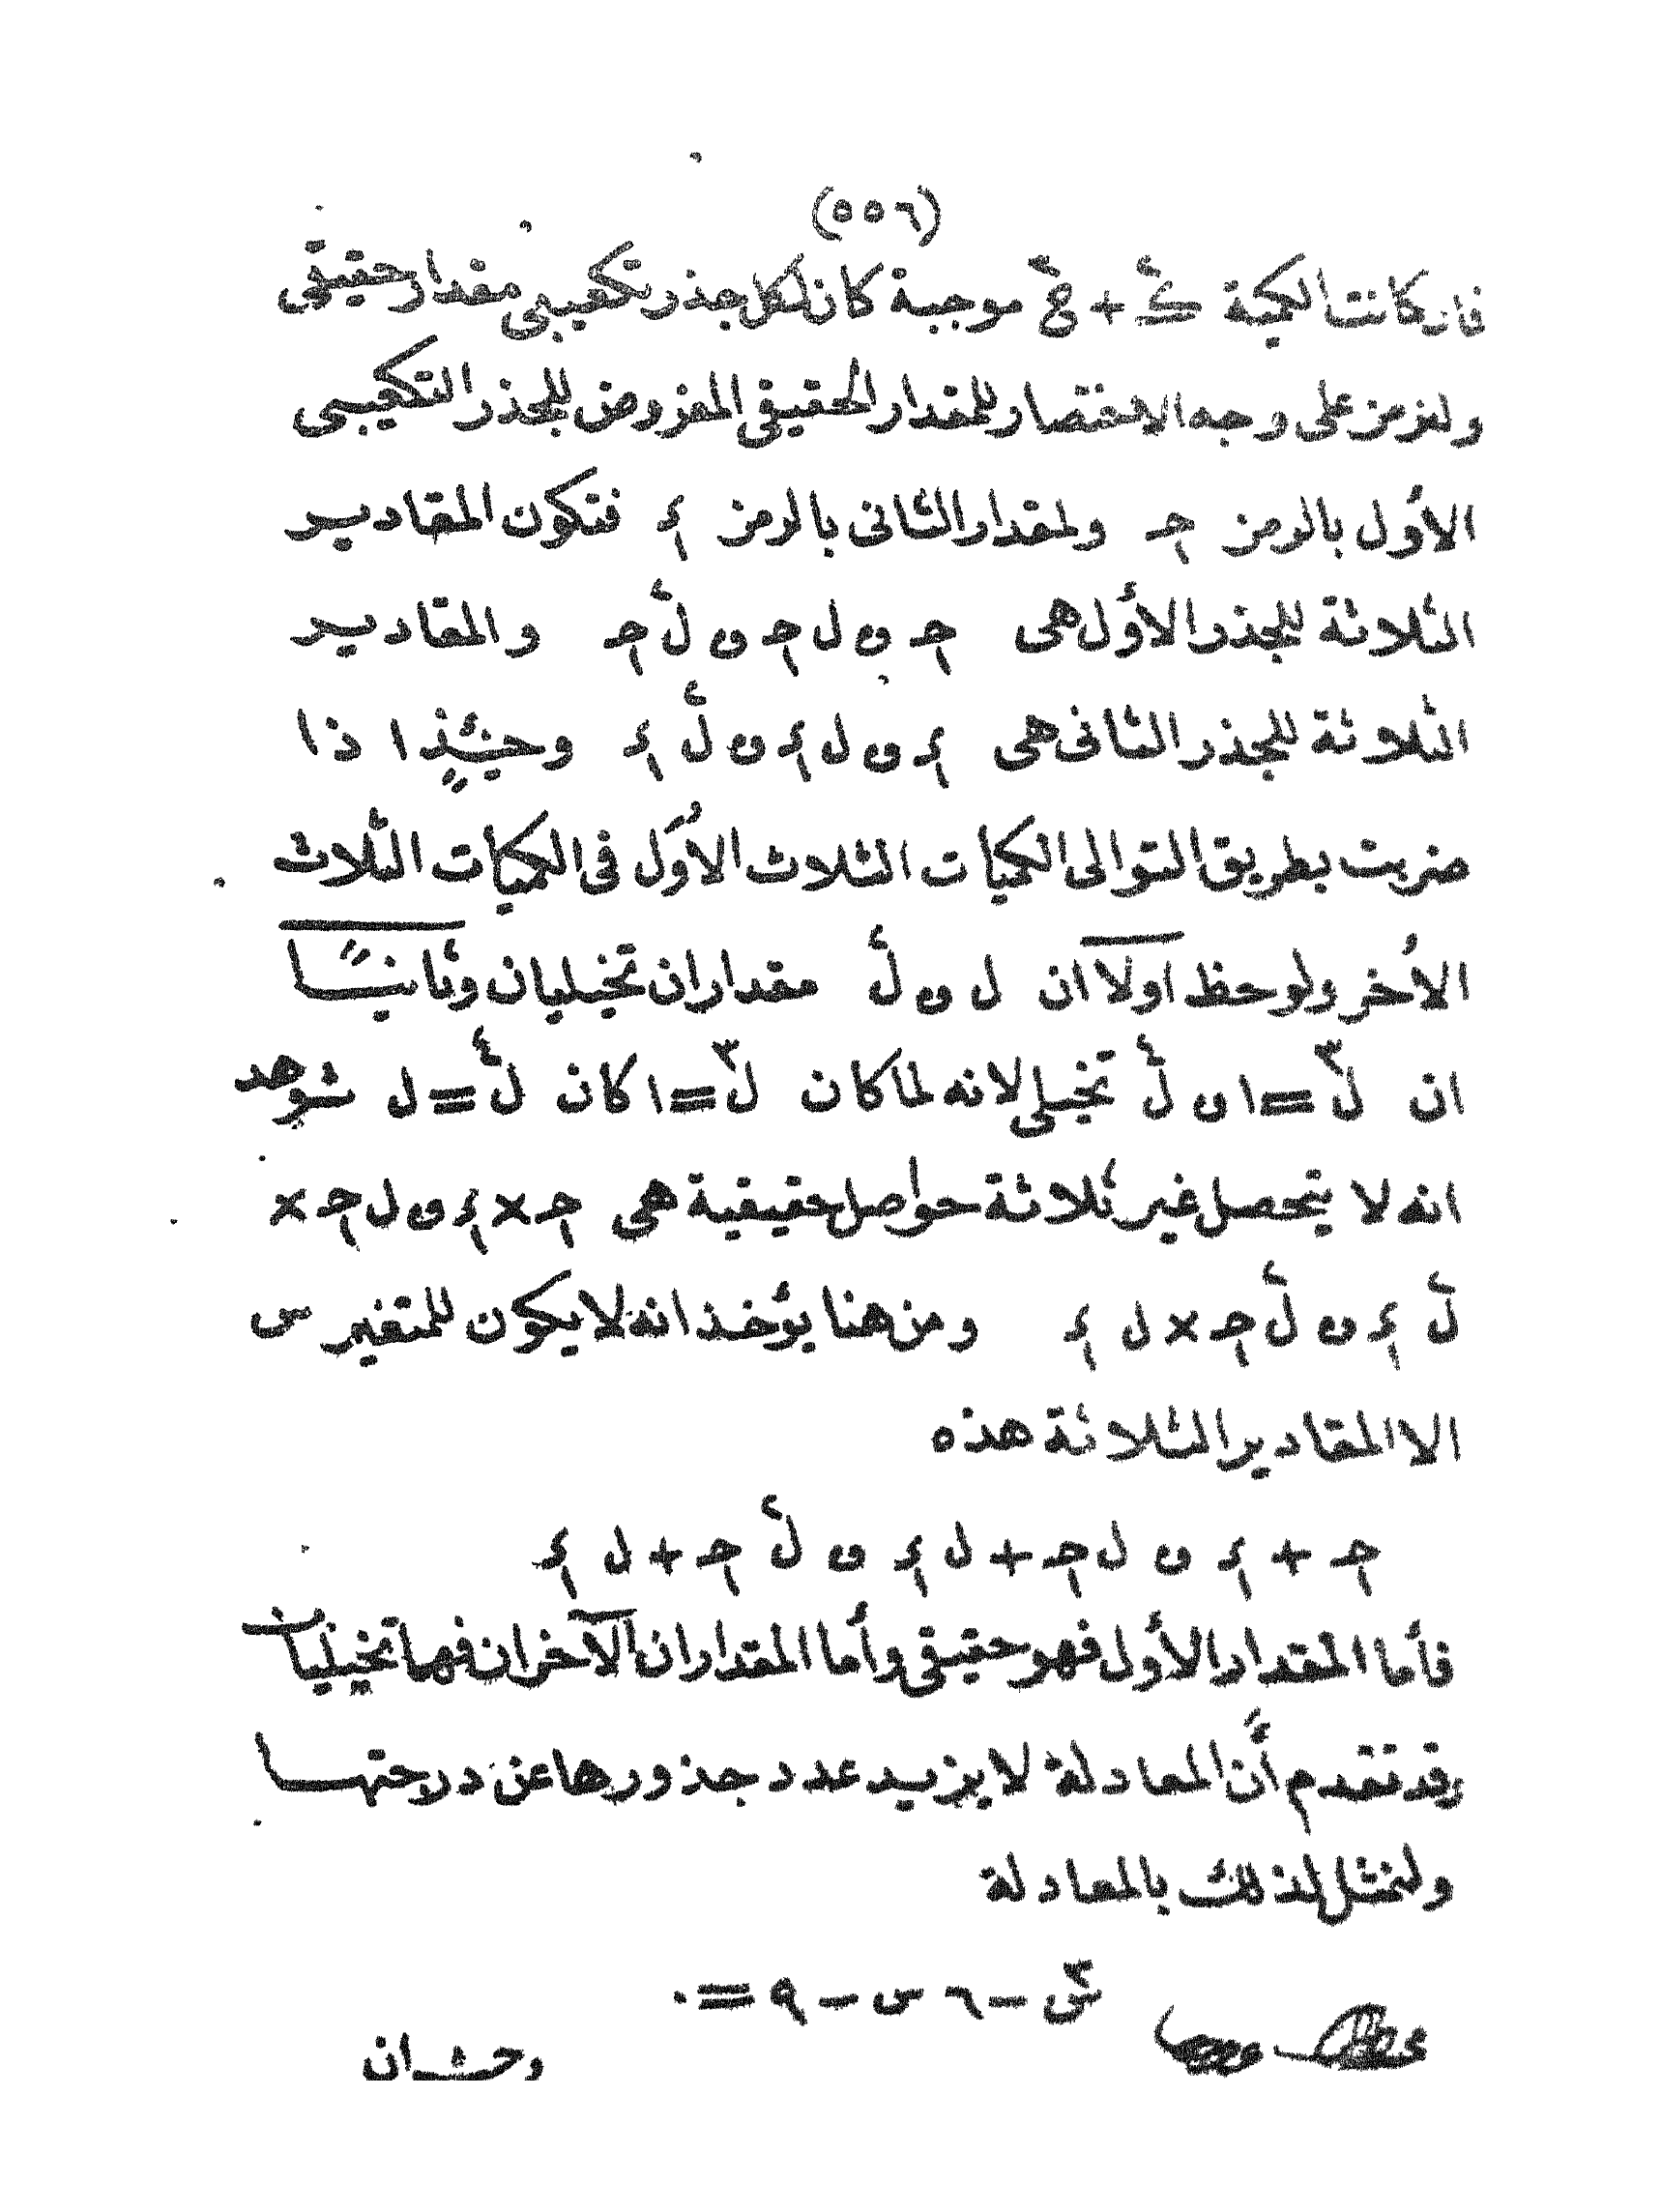 (٥٥٦)
فان كانت الكمية ك٢ + ع٣ موجبة كان لكل جذر تكعيبى مقدار حقيقى
ولنرمز على وجه الاختصار للمقدار الحقيقى المفروض للجذر التكعيبى
الأول بالرمز حـ١ ولمقدار الثانى بالرمز ء١ فتكون المقادير
الثلاثة للجذر الأول هى حـ١ و ل حـ١ و ل٢ حـ١ والمقادير
الثلاثة للجذر الثانى هى ء١ و ل ء١ و ل٢ ء١ وحينئذٍ اذا
ضربت بطريق التوالى الكميات الثلاث الأُوَل فى الكميات الثلاث
الأُخر ولوحظ اولا ان ل و ل٢ مقداران تخيليان وثانيًا
ان ل٣ = ١ و ل٤ تخيلى لانه لما كان ل٣ = ١ كان ل٤ = ل شوهد
انه لا يتحصل غير ثلاثة حواصل حقيقية هى حـ١ × ء١ و ل حـ١ ×
ل٢ ء١ و ل٢ حـ١ × ل ء١ ومن هنا يؤخذ انه لا يكون للمتغير س
الا المقادير الثلاثة هذه
حـ١ + ء١ و ل حـ١ + ل ء١ و ل٢ حـ١ + ل ء١
فأما المقدار الأول فهو حقيقى وأما المقداران الآخران فهما تخيليان
وقد تقدم أنّ المعادلة لا يزيد عدد جذورها عن درجتها
ولنمثل لذلك بالمعادلة
س٣ - ٦ س - ٩ = ٠
وحيث ان